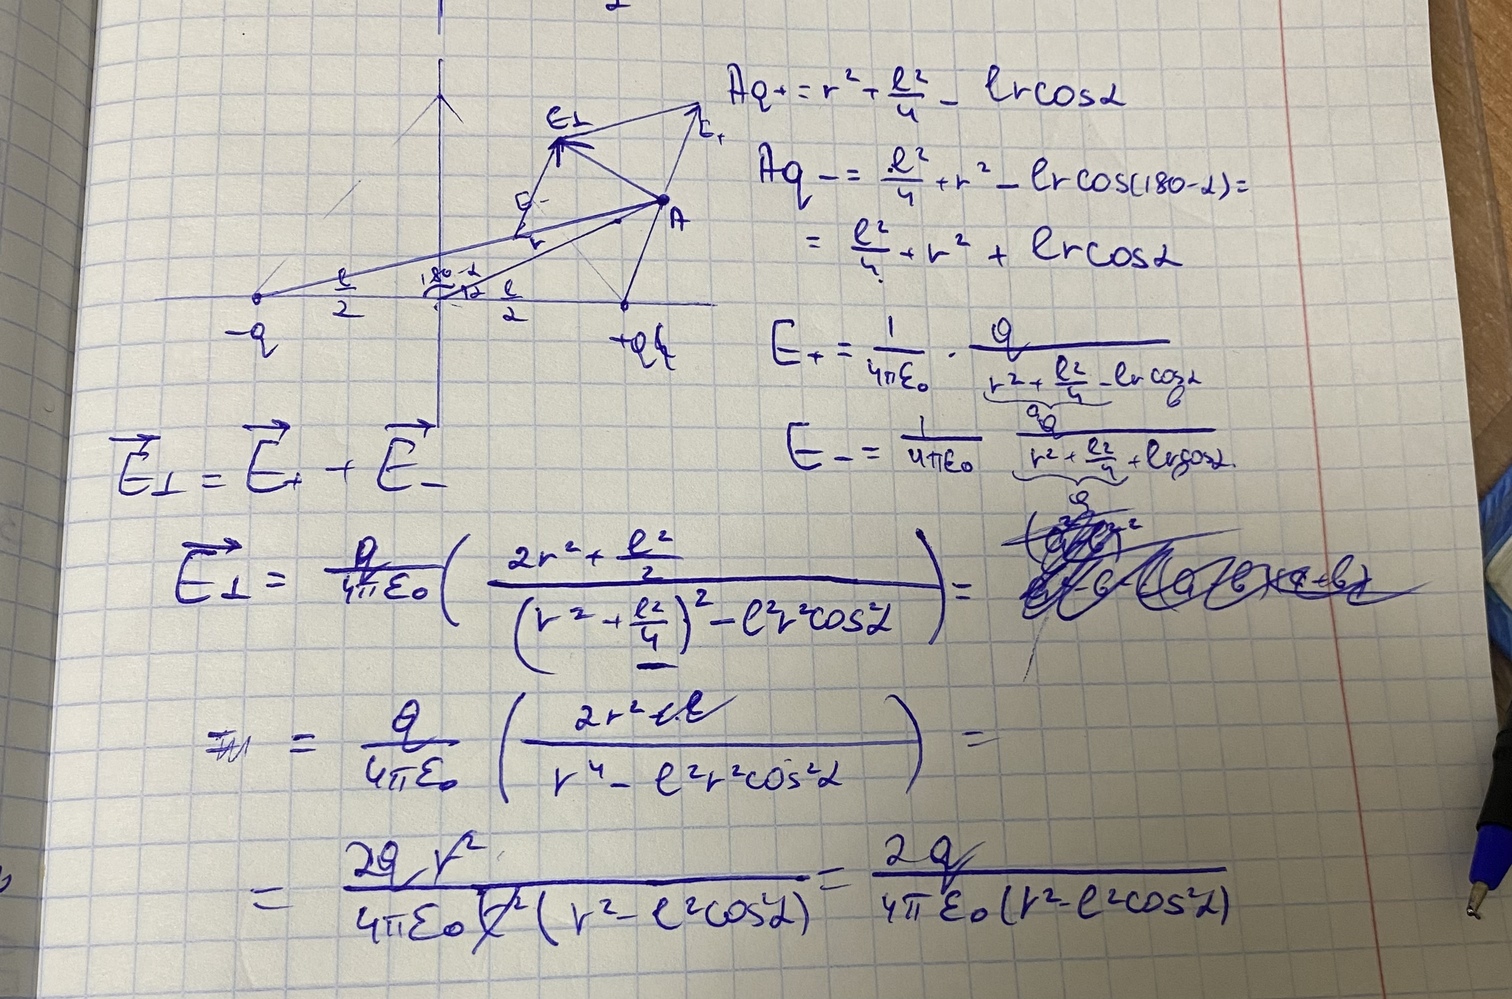 Aq+ = r² + l²/4 - lrcosα
E⊥
E+
Aq- = l²/4 + r² - lrcos(180-α) =
E-
A
r
= l²/4 + r² + lrcosα
180-α
α
l/2
l/2
-q
+q
E+ = 1/4πε₀ · q/(r² + l²/4 - lrcosα)
E- = 1/4πε₀ q/(r² + l²/4 + lrcosα)
E⃗⊥ = E⃗+ + E⃗-
E⃗⊥ = q/4πε₀ ( (2r² + l²/2)/((r² + l²/4)² - l²r²cos²α) ) =
= q/4πε₀ ( 2r²/(r⁴ - l²r²cos²α) ) =
= 2q r²/(4πε₀ r² (r² - l²cos²α)) = 2q/(4πε₀ (r² - l²cos²α))